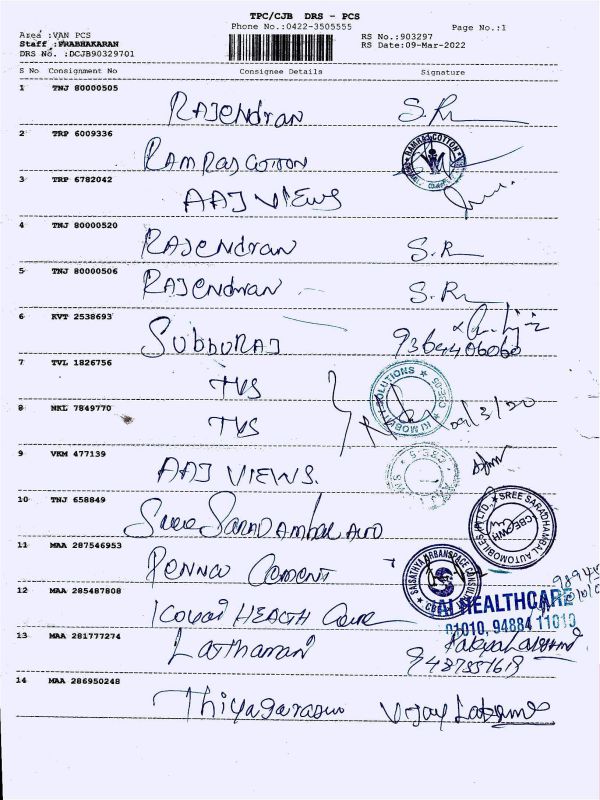 TPC/CJB DRS - PCS
Phone No.:0422-3505555 Page No.:1
Area : VAN PCS RS No.:903297
Staff : PRABHAKARAN RS Date:09-Mar-2022
DRS No. :DCJB90329701
S No Consignment No Consignee Details Signature
1 TNJ 80000505
RAJendran S.R
2 TRP 6009336
RAMRAJ COTTON RAMRAJ COTTON
3 TRP 6782042
AAJ VIEWS
4 TNJ 80000520
RAJeNdran S.R
5 TNJ 80000506
RAJeNdran S.R
6 KVT 2538693
SUBBURAJ 9364406060
7 TVL 1826756
TVS KI MOBILITY SOLUTIONS
8 NKL 7849770
TVS
9 VKM 477139
AAJ VIEWS.
10 TNJ 658849
Sree SARADAMbal AUTO SREE SARADHAMBAL AUTOMOBILES (P) LTD.
11 MAA 287546953
PENNA CEMENT URBANSPACE
12 MAA 285487808
Kovai HEALTH Care AI HEALTHCARE
01010, 94884 11010
13 MAA 281777274
14 MAA 286950248
Thiyagarasu